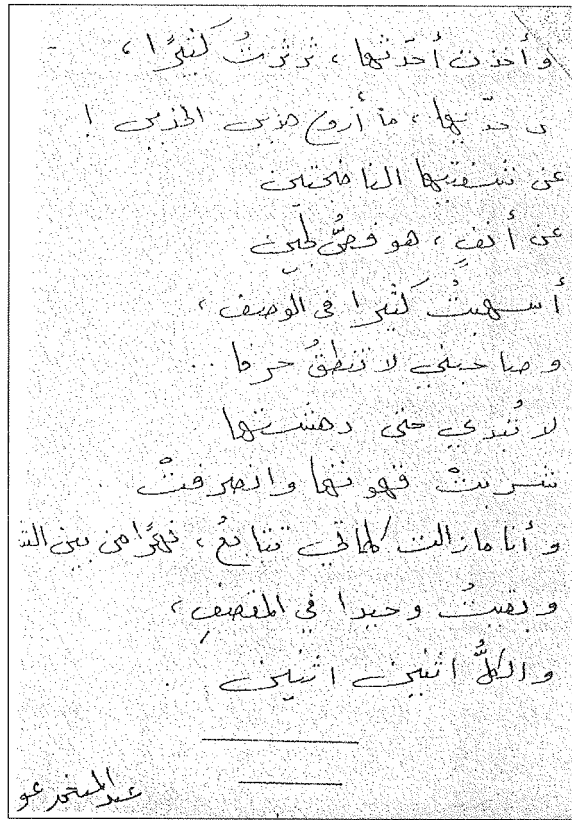 وأخذت أحدثها، ثرثرتُ كثيرًا،
خدّيها، ما أروع هذين الخدين !
عن شفتيها الناضجتين
عن أنفٍ، هو فصُّ لجين
أسهبتُ كثيرا في الوصف،
وصاحبتي لا تنطقُ حرفا ..
لا تُبدي حتى دهشتها
شربتْ قهوتها وانصرفتْ
وأنا مازالت كلماتي تتابعُ، نهرًا من بين
وبقيتُ وحيدا في المقصفِ،
والكلُّ اثنين اثنين
عبد المنعم عو